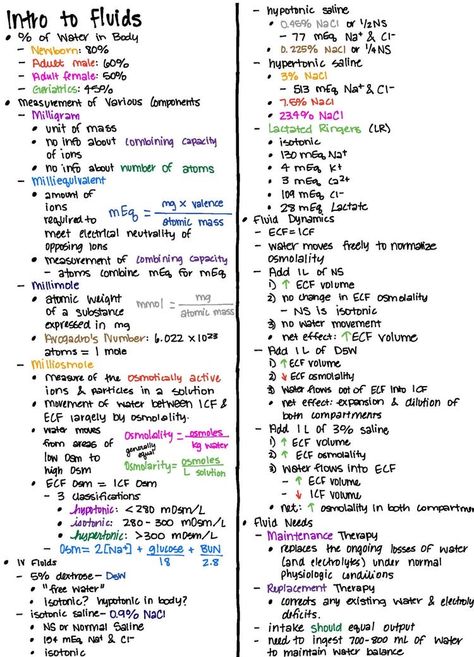 Intro to Fluids
• % of Water in Body
– Newborn: 80%
– Adult male: 60%
– Adult female: 50%
– Geriatrics: 45%
• Measurement of Various Components
– Milligram
• unit of mass
• no info about combining capacity
of ions
• no info about number of atoms
– Milliequivalent
• amount of
ions
required to
meet electrical neutrality of
opposing ions
mEq = mg x valence
atomic mass
• measurement of combining capacity
– atoms combine mEq for mEq
– Millimole
• atomic weight
of a substance
expressed in mg
mmol = mg
atomic mass
• Avogadro's Number: 6.022 x 10²³
atoms = 1 mole
– Milliosmole
• measure of the osmotically active
ions & particles in a solution
• movement of water between ICF &
ECF largely by osmolality.
• water moves
from areas of
low Osm to
high Osm
Osmolality = osmoles
kg water
generally
equal
Osmolarity = osmoles
L solution
• ECF Osm = ICF Osm
– 3 classifications
• hypotonic: < 280 mOsm/L
• isotonic: 280 - 300 mOsm/L
• hypertonic: > 300 mOsm/L
– Osm = 2[Na+] + glucose + BUN
18 2.8
• IV Fluids
– 5% dextrose – D5W
• "free water"
• isotonic? hypotonic in body?
– isotonic saline – 0.9% NaCl
• NS or Normal Saline
• 154 mEq Na+ & Cl-
• isotonic
– hypotonic saline
• 0.45% NaCl or 1/2 NS
– 77 mEq Na+ & Cl-
• 0.225% NaCl or 1/4 NS
– hypertonic saline
• 3% NaCl
– 513 mEq Na+ & Cl-
• 7.5% NaCl
• 23.4% NaCl
– Lactated Ringers (LR)
• isotonic
• 130 mEq Na+
• 4 mEq K+
• 3 mEq Ca2+
• 109 mEq Cl-
• 28 mEq Lactate
• Fluid Dynamics
– ECF = ICF
– water moves freely to normalize
osmolality
– Add 1L of NS
1) ↑ ECF volume
2) no change in ECF osmolality
– NS is isotonic
3) no water movement
• net effect: ↑ ECF volume
– Add 1L of D5W
1) ↑ ECF volume
2) ↓ ECF osmolality
3) water flows out of ECF into ICF
• net effect: expansion & dilution of
both compartments
– Add 1L of 3% saline
1) ↑ ECF volume
2) ↑ ECF osmolality
3) Water flows into ECF
– ↑ ECF volume
– ↓ ICF volume
• net: ↑ osmolality in both compartmen
• Fluid Needs
– Maintenance Therapy
• replaces the ongoing losses of water
(and electrolytes) under normal
physiologic conditions
– Replacement Therapy
• corrects any existing water & electroly
deficits.
– intake should equal output
– need to ingest 700-800 mL of water
to maintain water balance